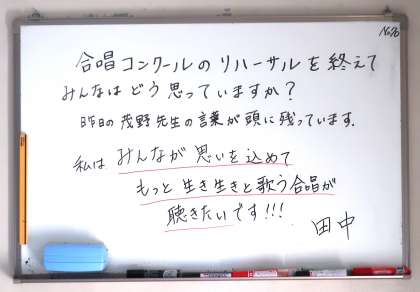 合唱コンクールのリハーサルを終えて
みんなはどう思っていますか?
昨日の茂野先生の言葉が頭に残っています.
私はみんなが思いを込めて
もっと生き生きと歌う合唱が
聴きたいです!!!
田中